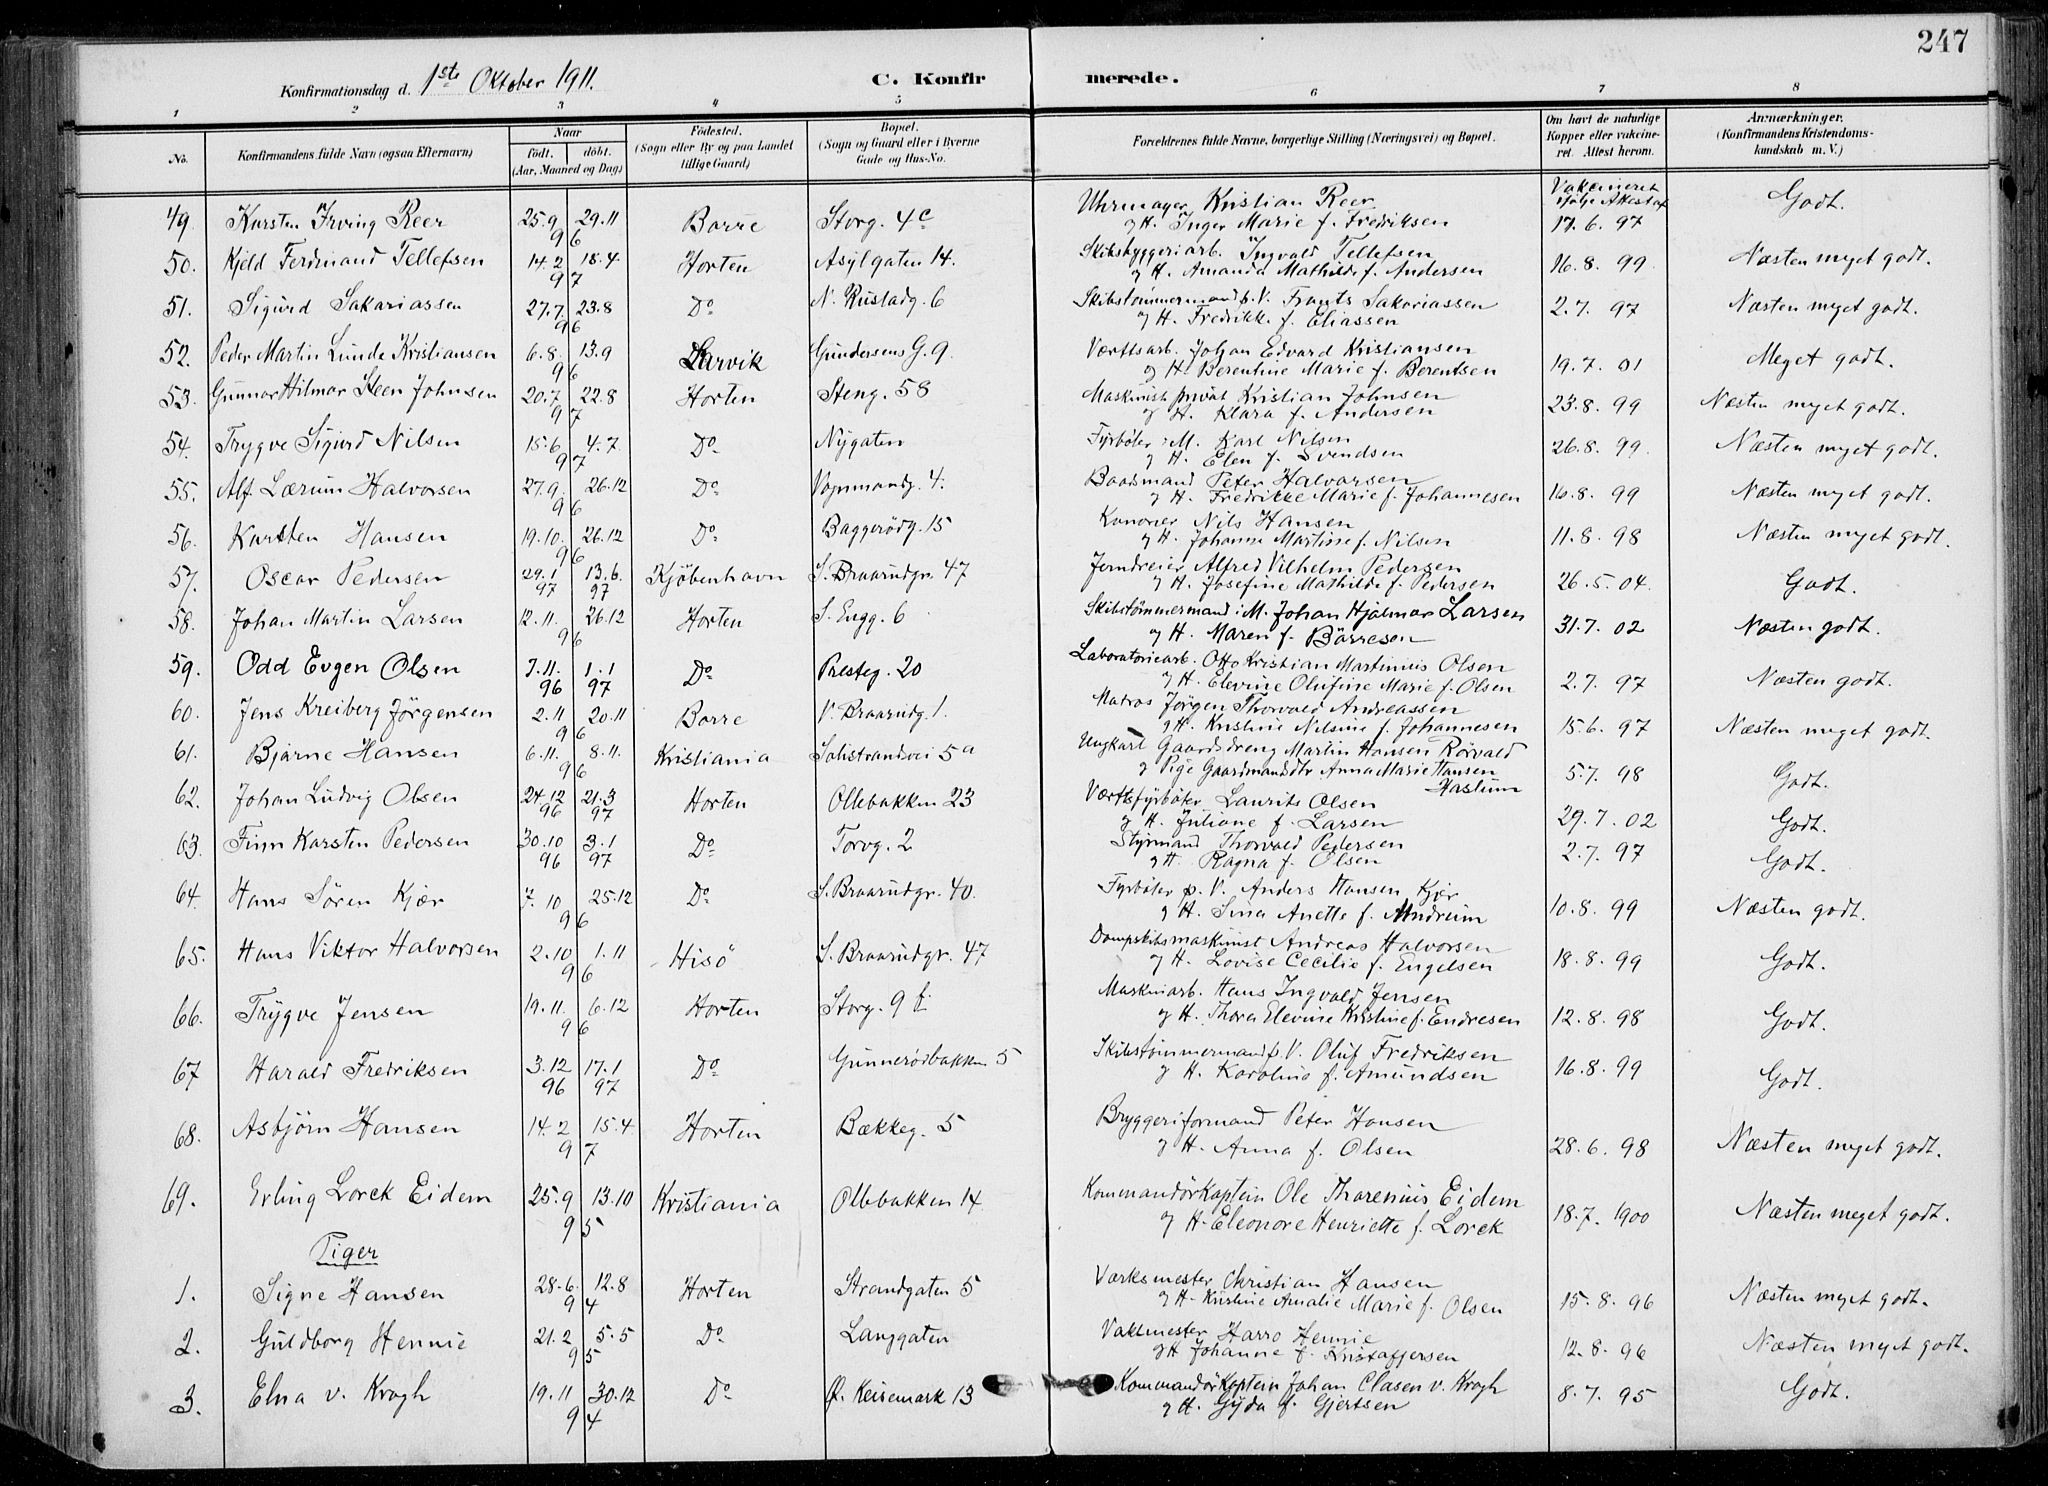 247
Konfirmationsdag d. 1ste Oktober 1911.
C. Konfirmerede.
1 2 3 4 5 6 7 8
No. Konfirmandens fulde Navn (ogsaa Efternavn) Naar født. døbt. (Aar, Maaned og Dag) Fødested. (Sogn eller By og paa Landet tillige Gaard) Bopæl. (Sogn og Gaard eller i Byerne Gade og Hus-No. Forældrenes fulde Navne, borgerlige Stilling (Næringsvei) og Bopæl. Om havt de naturlige Kopper eller vakcineret. Attest herom. Anmærkninger. (Konfirmandens Kristendomskundskab m. V.)
49 Karsten Irving Reer 25.9 29.11 96 Borre Storg. 4c Uhrmager Kristian Reer Vakcineret ifølge Attest af Godt.
og H. Inger Marie f. Fredriksen 17.6.97
50. Kjeld Ferdinand Tellefsen 14.2 18.4 97 Horten Asylgaten 14. Skibsbyggeriarb. Ingvald Tellefsen Næsten meget godt.
og H. Amanda Mathilde f. Andersen 16.8.99
51. Sigurd Sakariassen 27.7. 23.8 96 Do N. Rustadg. 6 Skibstømmermand p. V. Frants Sakariassen Næsten meget godt.
og H. Fredrikke f. Eliassen 2.7.97
52. Peder Martin Lunde Kristiansen 6.8. 13.9 96 Larvik Gundersens G. 9. Værftsarb. Johan Edvard Kristiansen Meget godt.
og H. Berentine Marie f. Berentsen 19.7.01
53. Gunnar Hilmar Steen Johnsen 20.7 22.8 97 Horten Steng. 58 Maskinist privat Kristian Johnsen Næsten meget godt.
og H. Klara f. Andersen 23.8.99
54. Trygve Sigurd Nilsen 15.6 4.7 97 Do Nygaten Fyrbøter i M. Karl Nilsen Næsten meget godt.
og H. Elen f. Svendsen 26.8.99
55. Alf Lærum Halvorsen 27.9. 26.12 96 Do Vognmandg. 4. Baadsmand Peter Halvorsen Næsten meget godt.
og H. Fredrikke Marie f. Johannesen 16.8.99
56. Karsten Hansen 19.10. 26.12 96 Do Baggerødg. 15 Kanoner Nils Hansen Næsten meget godt.
og H. Johanne Martine f. Nilsen 11.8.98
57. Oscar Pedersen 29.1 97 13.6. 97 Kjøbenhavn S. Braarudgr. 47 Jerndreier Alfred Vilhelm Pedersen Godt.
og H. Josefine Mathilde f. Pedersen 26.5.04.
58. Johan Martin Larsen 12.11. 26.12 96 Horten S. Engg. 6 Skibstømmermand i M. Johan Hjalmar Larsen Næsten godt.
og H. Maren f. Børresen 31.7.02
59. Odd Evgen Olsen 7.11. 96 1.1 97 Do Presteg. 20 Laboratoriearb. Otto Kristian Martinius Olsen Næsten godt.
og H. Elevine Olufine Marie f. Olsen 2.7.97
60. Jens Kreiberg Jørgensen 2.11 20.11 96 Borre V. Braarudg. 1. Matros Jørgen Thorvald Andreassen Næsten meget godt.
og H. Kristine Nilsine f. Johannesen 15.6.97
61. Bjarne Hansen 6.11. 8.11. 96 Kristiania Solistrandvei 5a Ungkarl Gaardsdreng Martin Hansen Rørvald Godt.
og Pige Gaardmandsdtr Anna Marie Hansen Haslum 5.7.98
62. Johan Ludvig Olsen 24.12 96 21.3 97 Horten Ollebakken 23 Værftsfyrbøter Laurits Olsen Godt.
og H. Juliane f. Larsen 29.7.02
63. Finn Karsten Pedersen 30.10 96 3.1 97 Do Torvg. 2 Styrmand Thorvald Pedersen Godt.
og H. Ragna f. Olsen 2.7.97
64. Hans Søren Kjær 7.10 25.12 96 Do S. Braarudgr. 40. Fyrbøter p. V. Anders Hansen Kjær Næsten godt.
og H. Sina Anette f. Mundreim 10.8.99
65. Hans Viktor Halvorsen 2.10 1.11 96 Hisø S. Braarudgr. 47 Dampskibsmaskinist Andreas Halvorsen Godt.
og H. Lovise Cecilie f. Engelsen 18.8.99
66. Trygve Jensen 19.11. 6.12 96 Horten Storg. 9 f. Maskinarb. Hans Ingvald Jensen Godt.
og H. Thora Elevine Kristine f. Endresen 12.8.98
67 Harald Fredriksen 3.12 96 17.1 97 Do Gunnerødbakken 5 Skibstømmermand p. V. Oluf Fredriksen Godt.
og H. Karoline f. Amundsen 16.8.99
68. Asbjørn Hansen 14.2 15.4 97 Horten Bækkeg. 5 Bryggeriformand Peter Hansen Næsten meget godt.
og H. Anna f. Olsen 28.6.98
69. Erling Lorck Eidem 25.9 13.10 95 Kristiania Ollebakken 14 Kommandørkaptein Ole Thorenius Eidem Næsten meget godt.
og H. Eleonore Henriette f. Lorck 18.7.1900
Piger
1. Signe Hansen 28.6. 12.8 94 Horten Strandgaten 5 Værksmester Christian Hansen Næsten meget godt.
og H. Kristine Amalie Marie f. Olsen 15.8.96
2. Guldborg Hennie 21.2 5.5 95 Do Langgaten Vaktmester Harro Hennie Næsten meget godt.
og H. Johanne f. Kristoffersen 12.8.96
3. Elna v. Krogh 19.11 30.12 94 Do Ø. Keisemark 13 Kommandørkaptein Johan Clasen v. Krogh Godt.
og H. Gyda f. Gjertsen 8.7.95